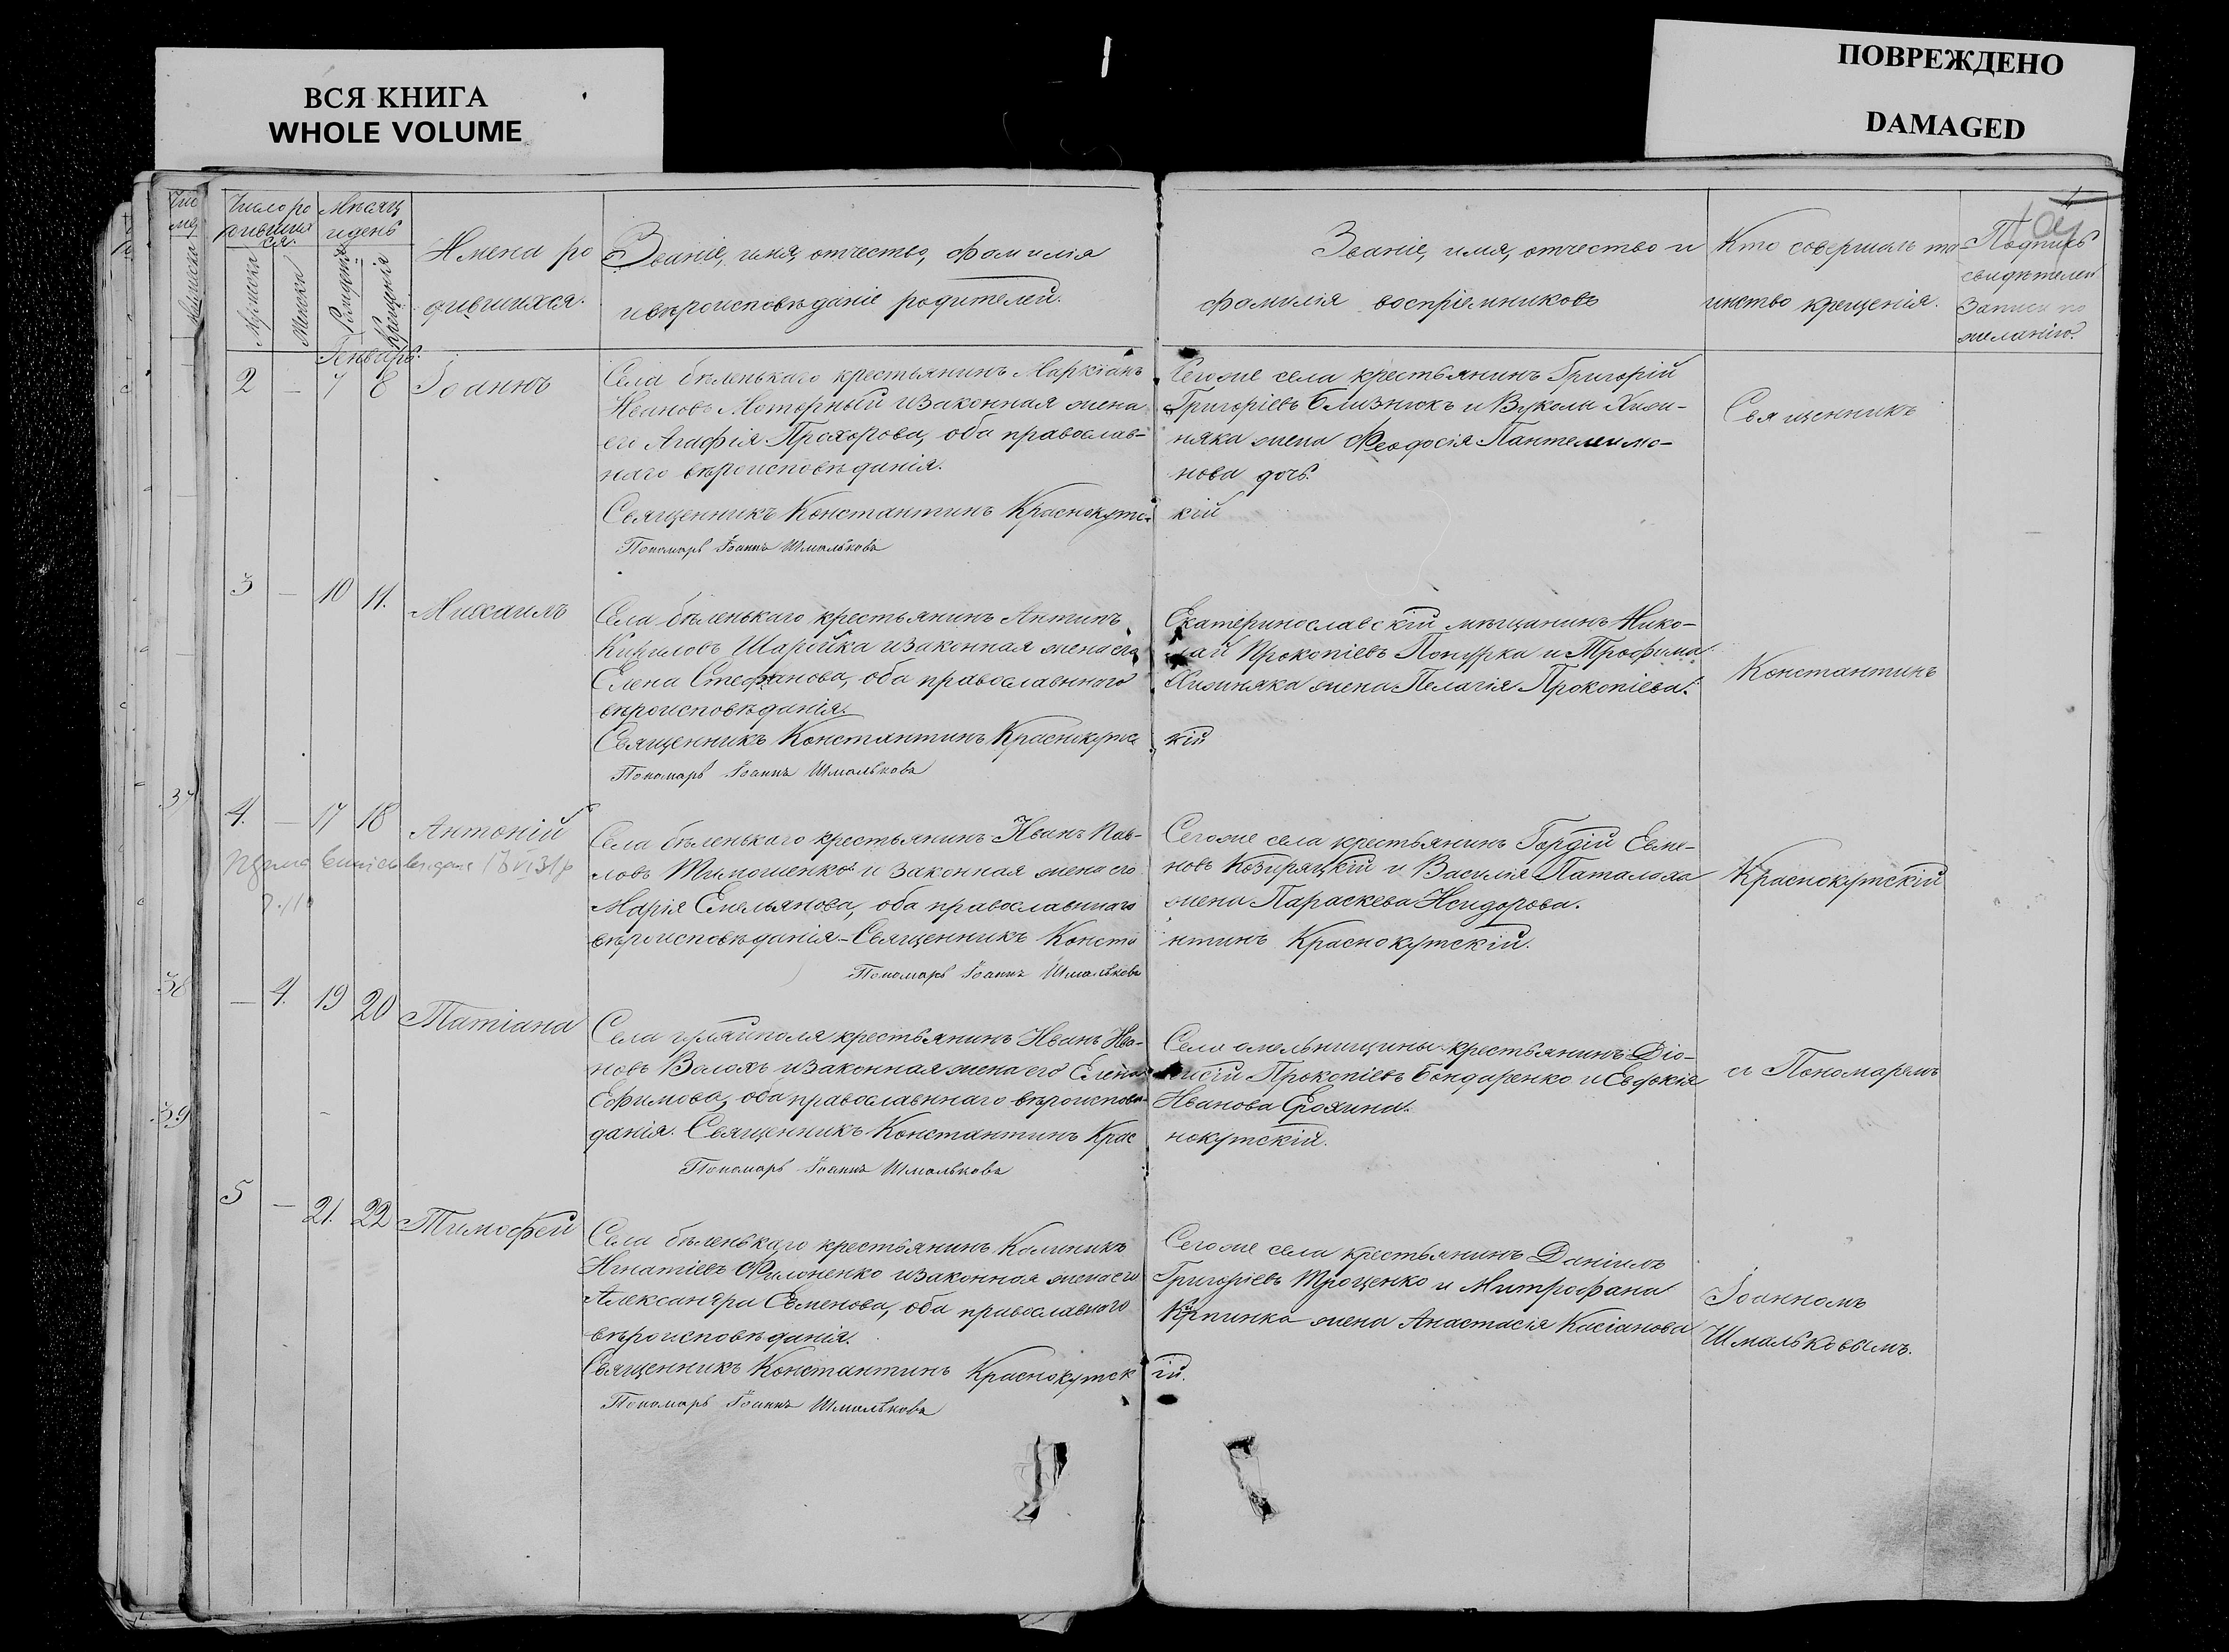 ВСЯ КНИГА
WHOLE VOLUME
ПОВРЕЖДЕНО
DAMAGED
Число ро
дившихся
Мужеска
Женска
Мѣсяц
и день
Рожденія
Крещенія
Имена ро
дившихся.
Званіе, имя, отчество, фамилія
и вѣроисповѣданіе родителей.
Званіе, имя, отчество и
фамилія воспріемниковъ
Кто совершалъ та-
инство крещенія.
Подпись
свидѣтелей
записи по
желанію.
Генварь.
2 — 7 8 Іоаннъ
Села бѣленькаго крестьянинъ Маркіанъ
Ивановъ Моторный и законная жена
его Агафія Прохорова, оба православ-
наго вѣроисповѣданія.
Священникъ Константинъ Краснокутс
кій
Пономарь Іоаннъ Шмальковъ
Тогоже села крестьянинъ Григорій
Григоріевъ Близнюкъ и Вукола Хиж-
няка жена Феодосія Пантелеимо-
нова дочь.
Священникъ
3 — 10 11. Михаилъ
Села бѣленькаго крестьянинъ Антипъ
Кириловъ Шаройка и законная жена его
Елена Стефанова, оба православнаго
вѣроисповѣданія.
Священникъ Константинъ Краснокутс
кій
Пономарь Іоаннъ Шмальковъ
Екатеринославскій мѣщанинъ Нико-
лай Прокопіевъ Понурка и Трофима
Хижняка жена Пелагія Прокопіева.
Константинъ
37
4. — 17 18 Антоній
Села бѣленькаго крестьянинъ Иванъ Пав-
ловъ Тимошенко и законная жена его
Марія Емельянова, оба православнаго
вѣроисповѣданія. Священникъ Конста
нтинъ Краснокутскій.
Пономарь Іоаннъ Шмальковъ
Тогоже села крестьянинъ Гордій Евме-
новъ Козиряцкій и Василія Паталаха
жена Параскева Исидорова.
Краснокутскій
38
— 4. 19 20 Татіана
Села гуляйполя крестьянинъ Иванъ Ива-
новъ Волохъ и законная жена его Елена
Ефимова, оба православнаго вѣроисповѣ-
данія. Священникъ Константинъ Крас
нокутскій.
Пономарь Іоаннъ Шмальковъ
Села омельнищины крестьянинъ Діо-
нисій Прокопіевъ Бондаренко и Евфокія
Иванова Ерохина.
съ Пономаремъ
39
5 — 21. 22 Тимофей
Села бѣленькаго крестьянинъ Калиникъ
Игнатіевъ Филоненко и законная жена его
Александра Евменова, оба православнаго
вѣроисповѣданія.
Священникъ Константинъ Краснокутск
ій.
Пономарь Іоаннъ Шмальковъ
Тогоже села крестьянинъ Даніилъ
Григоріевъ Троценко и Митрофана
жена Анастасія Касіанова
Іоанномъ
Шмальковымъ.